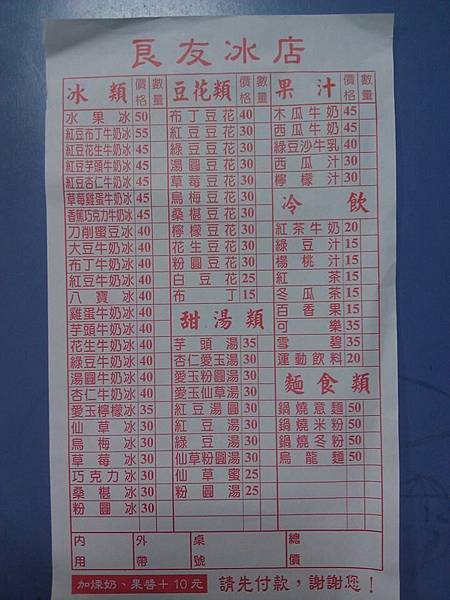 良友冰店
冰類 價格 數量
水果冰 50
紅豆布丁牛奶冰 55
紅豆花生牛奶冰 45
紅豆芋頭牛奶冰 45
紅豆杏仁牛奶冰 45
草莓雞蛋牛奶冰 45
香蕉巧克力牛奶冰 45
刀削蜜豆冰 40
大豆牛奶冰 40
布丁牛奶冰 40
紅豆牛奶冰 40
八寶冰 40
雞蛋牛奶冰 40
芋頭牛奶冰 40
花生牛奶冰 40
綠豆牛奶冰 40
湯圓牛奶冰 40
杏仁牛奶冰 40
愛玉檸檬冰 35
仙草冰 30
烏梅冰 30
草莓冰 30
巧克力冰 30
桑椹冰 30
粉圓冰 30
豆花類 價格 數量
布丁豆花 40
紅豆豆花 30
綠豆豆花 30
湯圓豆花 30
草莓豆花 30
烏梅豆花 30
桑椹豆花 30
檸檬豆花 30
花生豆花 30
粉圓豆花 30
白豆花 25
布丁 15
甜湯類
芋頭湯 35
杏仁愛玉湯 30
愛玉粉圓湯 30
愛玉仙草湯 30
紅豆湯圓 30
紅豆湯 30
綠豆湯 30
仙草粉圓湯 30
仙草蜜 25
粉圓湯 25
果汁 價格 數量
木瓜牛奶 45
西瓜牛奶 45
綠豆沙牛乳 40
西瓜汁 30
檸檬汁 30
冷飲
紅茶牛奶 20
綠豆汁 15
楊桃汁 15
紅茶 15
冬瓜茶 15
百香果 15
可樂 35
雪碧 35
運動飲料 20
麵食類
鍋燒意麵 50
鍋燒米粉 50
鍋燒冬粉 50
烏龍麵 50
內用 外帶 桌號 總價
加煉奶、果醬+10元 請先付款,謝謝您!